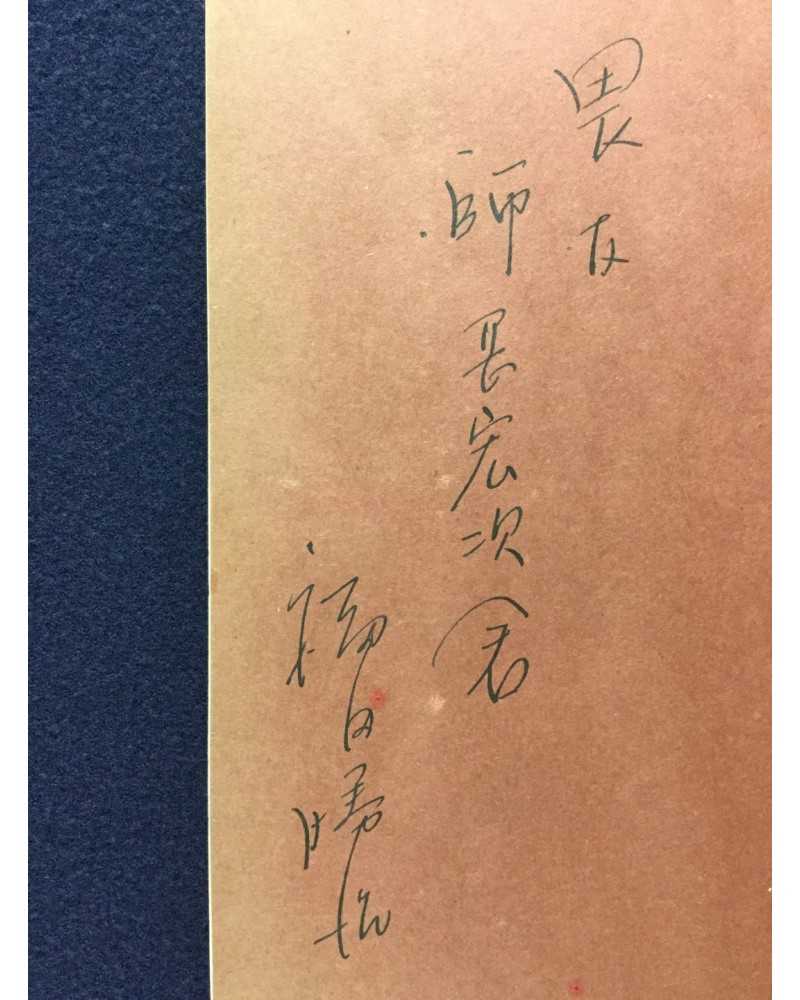 畏友
師岡宏次君
福田勝治